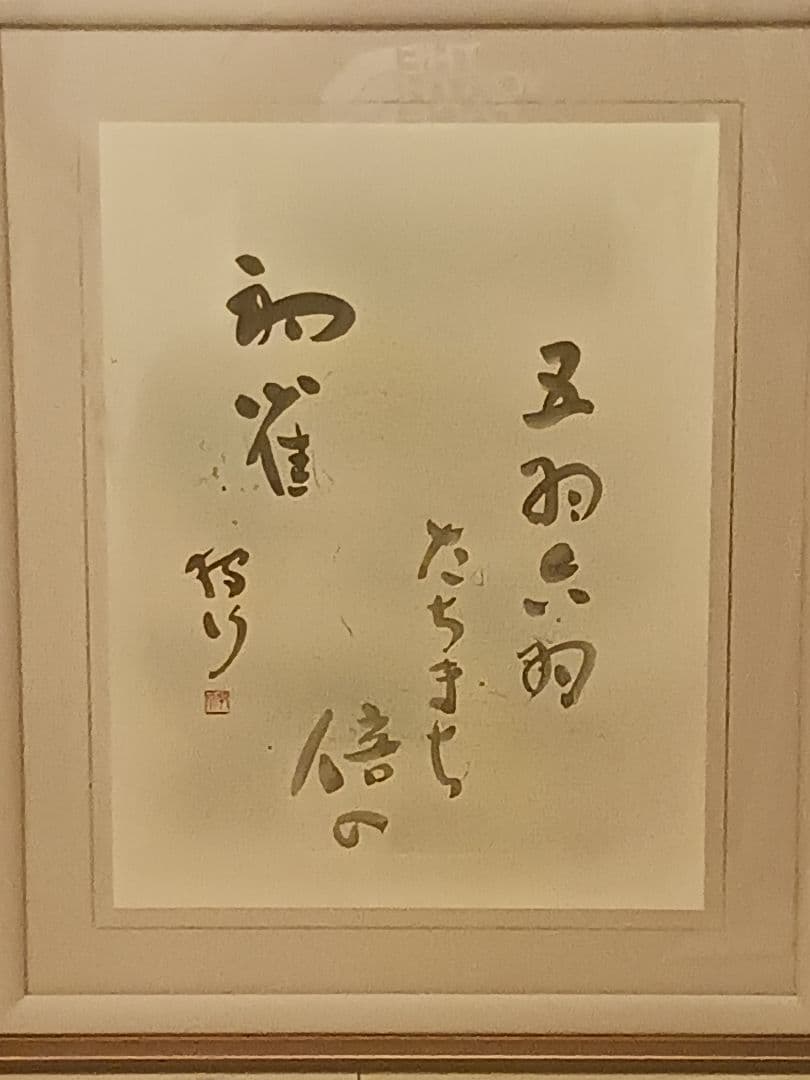 五羽六羽
たちまち
倍の
初雀
狩行